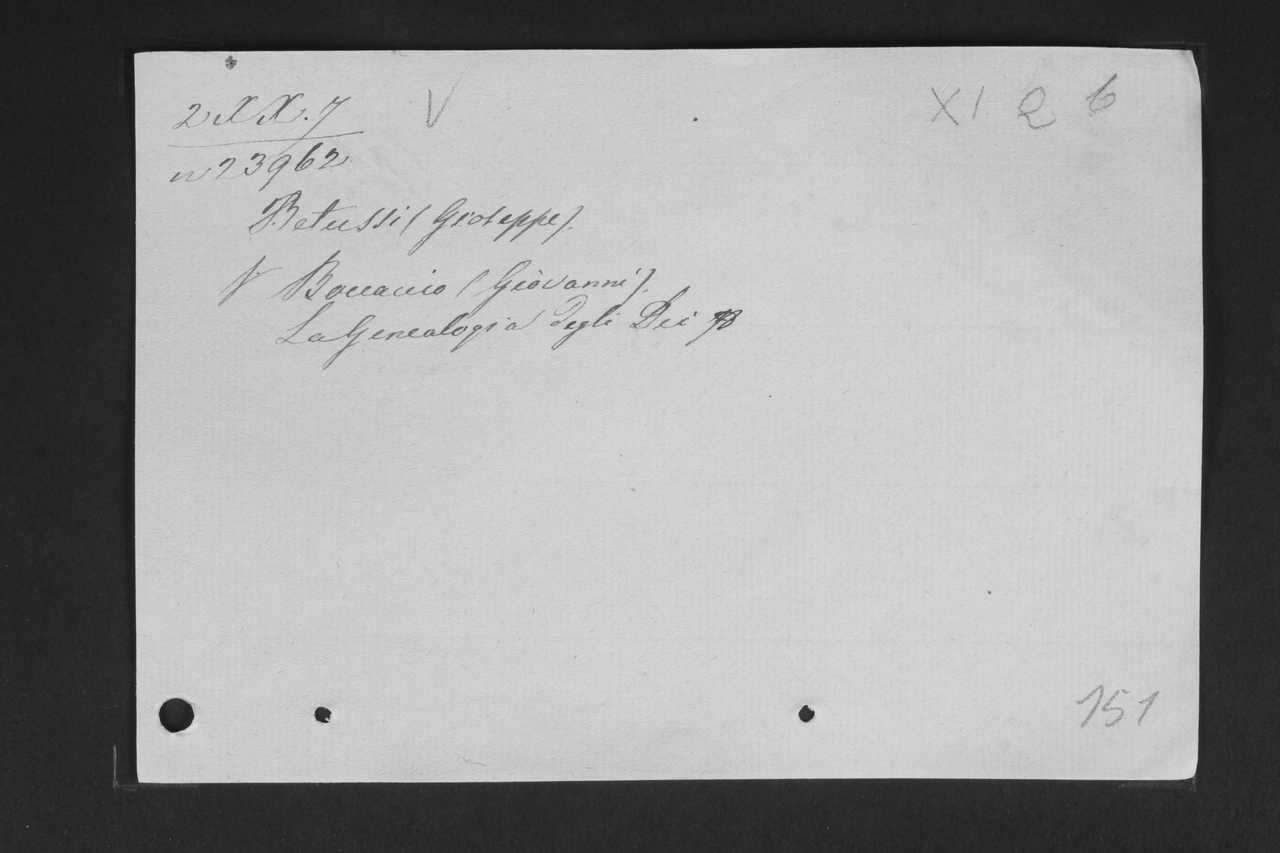 2 X X. 7
V
XI Q 6
n 23962
Betussi (Gioseppe).
V Boccaccio (Giovanni).
La Genealogia degli Dei
151